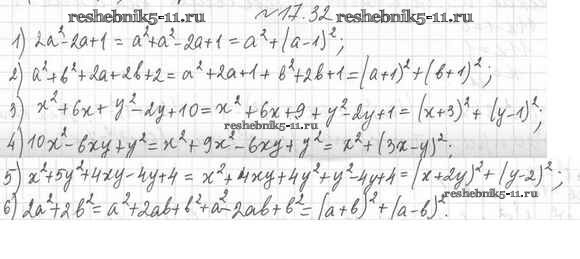 reshebnik5-11.ru №17.32
1) 2a²-2a+1 = a²+a²-2a+1 = a²+(a-1)²;
2) a²+b²+2a+2b+2 = a²+2a+1+b²+2b+1 = (a+1)²+(b+1)²;
3) x²+6x+y²-2y+10 = x²+6x+9+y²-2y+1 = (x+3)²+(y-1)²;
reshebnik5-11.ru
4) 10x²-6xy+y² = x²+9x²-6xy+y² = x²+(3x-y)²;
5) x²+5y²+4xy-4y+4 = x²+4xy+4y²+y²-4y+4 = (x+2y)²+(y-2)²;
reshebnik5-11.ru
6) 2a²+2b² = a²+2ab+b²+a²-2ab+b² = (a+b)²+(a-b)².